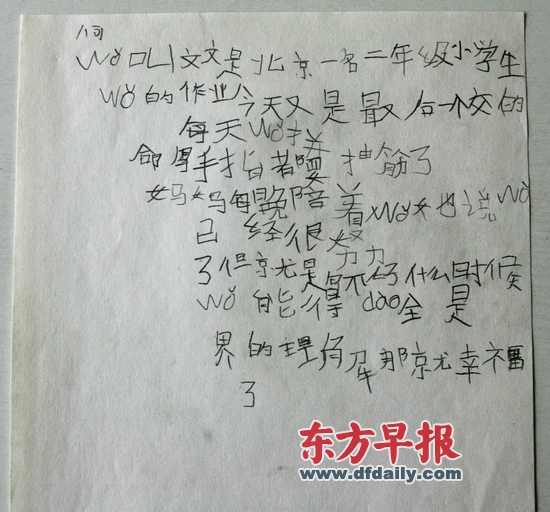 wǒ叫文文是北京一名二年级小学生
wǒ的作业今天又是最后一个交的
每天wǒ拼
命写手指都要抽筋了
妈妈每晚陪着wǒ她也说wǒ
已经很努力
了但就是写不好什么时候
wǒ能得dao全是
界的理解那就幸福
了
东方早报
www.dfdaily.com